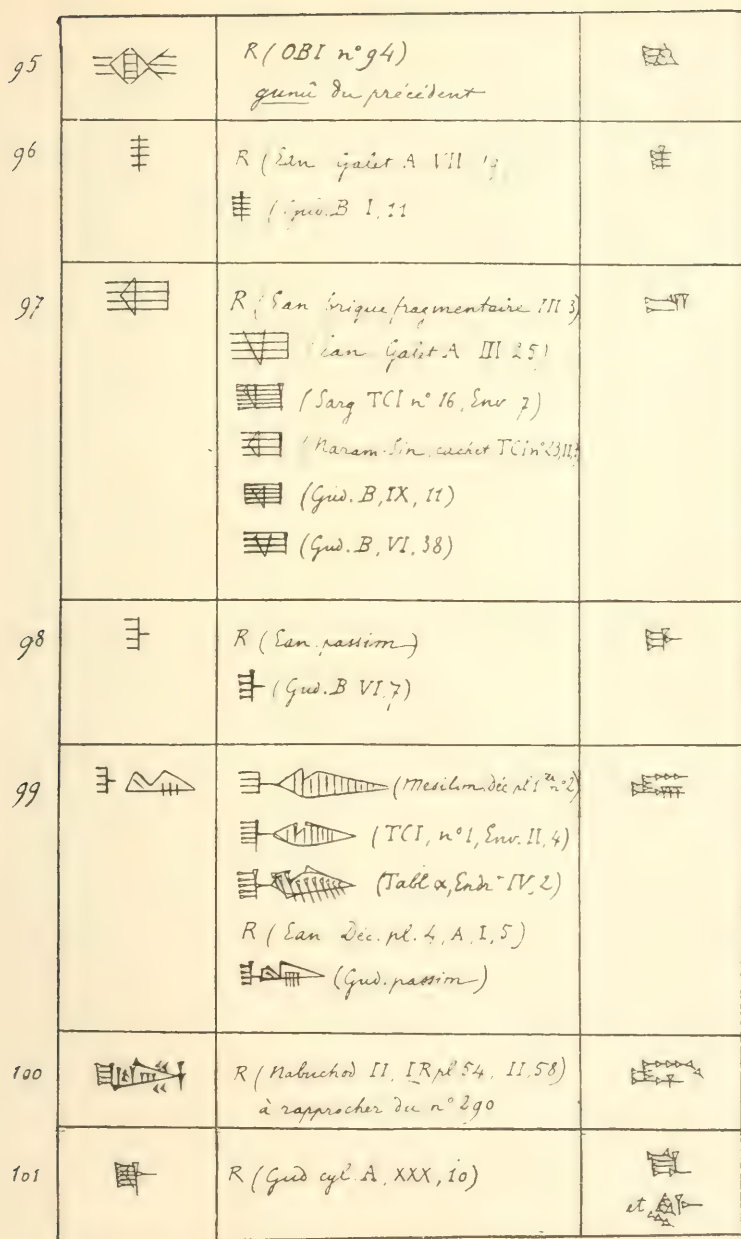 95 R (OBI n° 94)
gunû du précédent
96 R (Ean Galet A VII
(Gud. B I, 11
97 R (Ean brique fragmentaire III 3)
Ean Galet A III 25)
(Sarg TCI n° 16, Env 7)
(Naram-Sin, cachet TCI n° 23, II,
(Gud. B, IX, 11)
(Gud. B, VI, 38)
98 R (Ean. passim)
(Gud. B VI, 7)
99 (Mesilim, déc pl 1 n° 2)
(TCI, n° 1, Env. II, 4)
(Tabl α, Endr IV, 2)
R (Ean Déc. pl. 4, A, I, 5)
(Gud. passim)
100 R (Nabuchod II, IR pl 54, II, 58)
à rapprocher du n° 290
101 R (Gud cyl. A, XXX, 10)
et